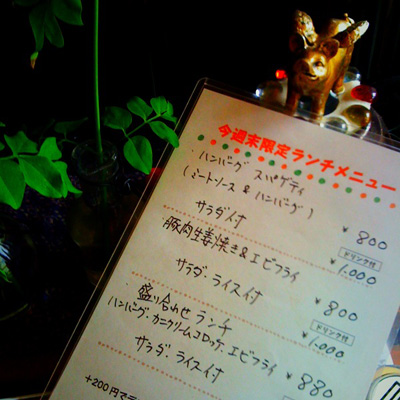 今週末限定ランチメニュー
ハンバーグ スパゲティ
(ミートソース & ハンバーグ)
サラダ付 ¥800
ドリンク付
¥1.000
豚肉生姜焼き&エビフライ
サラダ・ライス付 ¥800
ドリンク付
¥1.000
盛り合わせランチ
ハンバーグ・カニクリームコロッケ・エビフライ
サラダ・ライス付 ¥880
+200円で